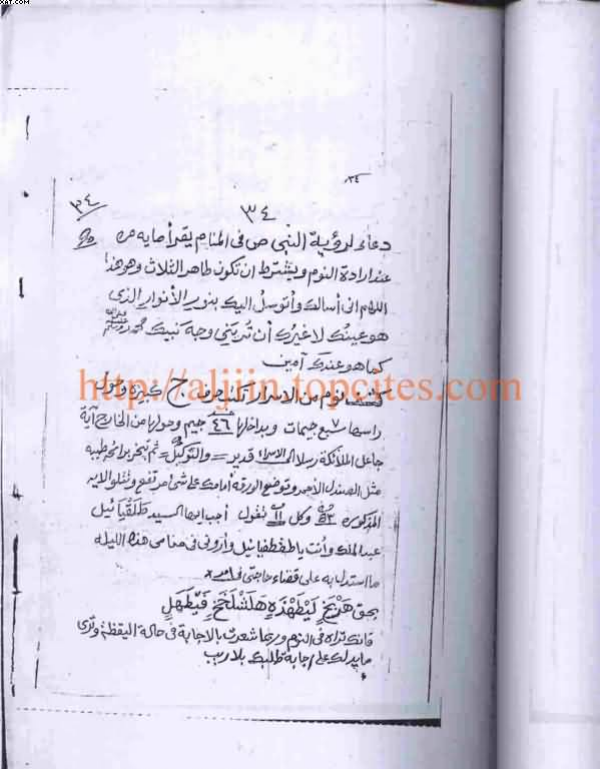 XAT.COM
٣٤
٣٤
٣٤
دعاء لرؤية النبي ص في المنام يقرأ مايه مره
عند ارادة النوم ويشترط ان تكون طاهر الثلاث وهو هذا
اللهم انى أسالك وأتوسل اليك بنور الأنوار الذى
هو عينك لا غيرك أن ترينى وجه نبيك محمد
كما هو عندك آمين
http://aljjin.topcites.com
نوم من الاسرار تكتب حرف ح كبيره وحول
راسها ٧ سبع جيمات وبداخلها ٤٦ جيم وحولها من الخارج آية
جاعل الملائكة رسلا الى قدير = والتوكيل = ثم تبخر برائحه طيبه
مثل الصندل الأحمر وتوضع الورقه أمامك على شئ مرتفع وتتلو الايه
المذكوره وكل تقول أجب ايها السيد طلقيائيل
عبد الملك وأنت يا طفطفيائيل وأرونى فى منامى هذه الليله
ما استدل به على قضاء حاجتى
بحق هريج ليطهذه هلشلخخ فيطهل
فانك تراه فى النوم وربما شعرت بالاجابة فى حالة اليقظة وترى
ما يدلك على اجابة طلبك بلا ريب